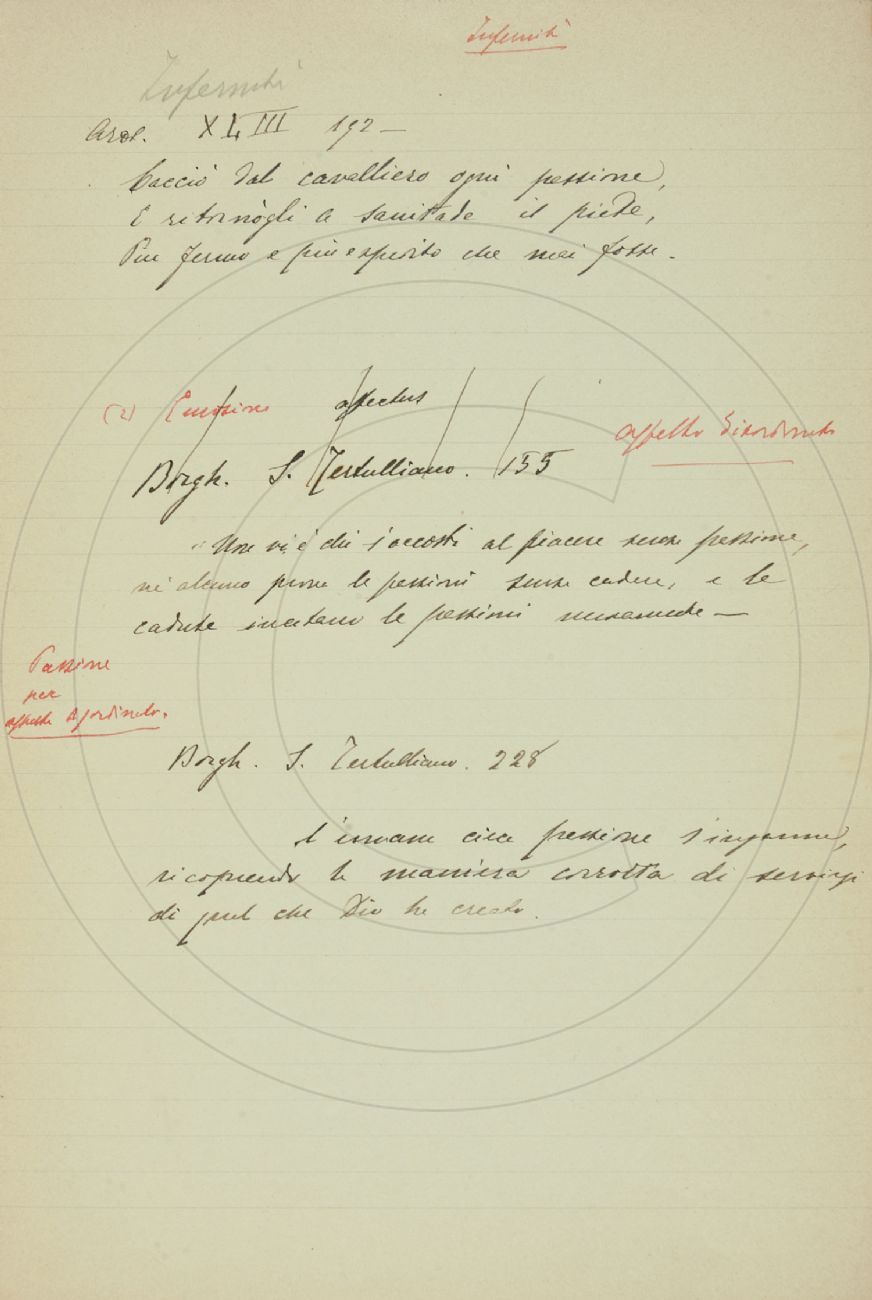 Infermità
Infermità
Arios. XLIII 192 —
Cacciò dal cavalliero ogni passione,
E ritornògli a sanitade il piede,
Più fermo e più espedito che mai fosse.
(2) Emozione affectus
affetto disordinato
Borgh. S. Tertulliano. 155
"Non vi è chi s'accosti al piacere senza passione,
nè alcuno prova le passioni senza cadere, e le
cadute incitano le passioni
Passione
per
affetto disordinato.
Borgh. S. Tertulliano. 228
L'umana cieca passione s'inganna,
ricoprendo la maniera corrotta di servirsi
di quel che Dio ha creato.